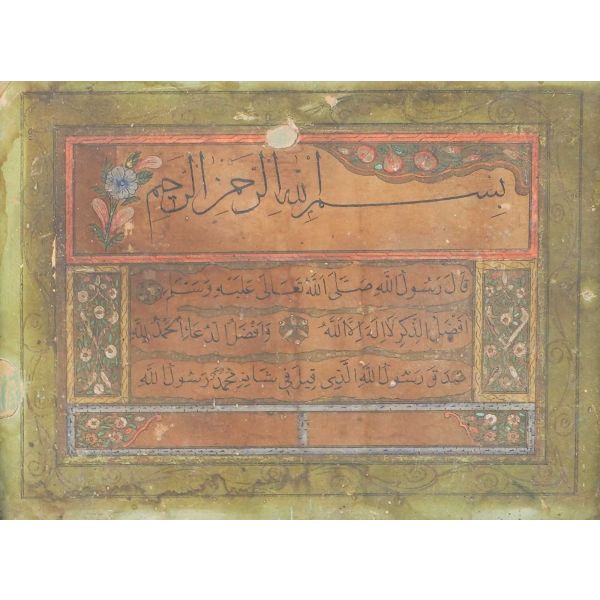 بِسْمِ اللهِ الرَّحْمٰنِ الرَّحِيمِ
قَالَ رَسُولُ اللهِ صَلَّى اللهُ تَعَالَى عَلَيْهِ وَسَلَّمَ
اَفْضَلُ الذِّكْرِ لَا اِلٰهَ اِلَّا اللهُ وَاَفْضَلُ الدُّعَاءِ اَلْحَمْدُ لِلّٰهِ
صَدَقَ رَسُولُ اللهِ الَّذِي قِيلَ فِي شَانِهِ مُحَمَّدٌ رَسُولُ اللهِ